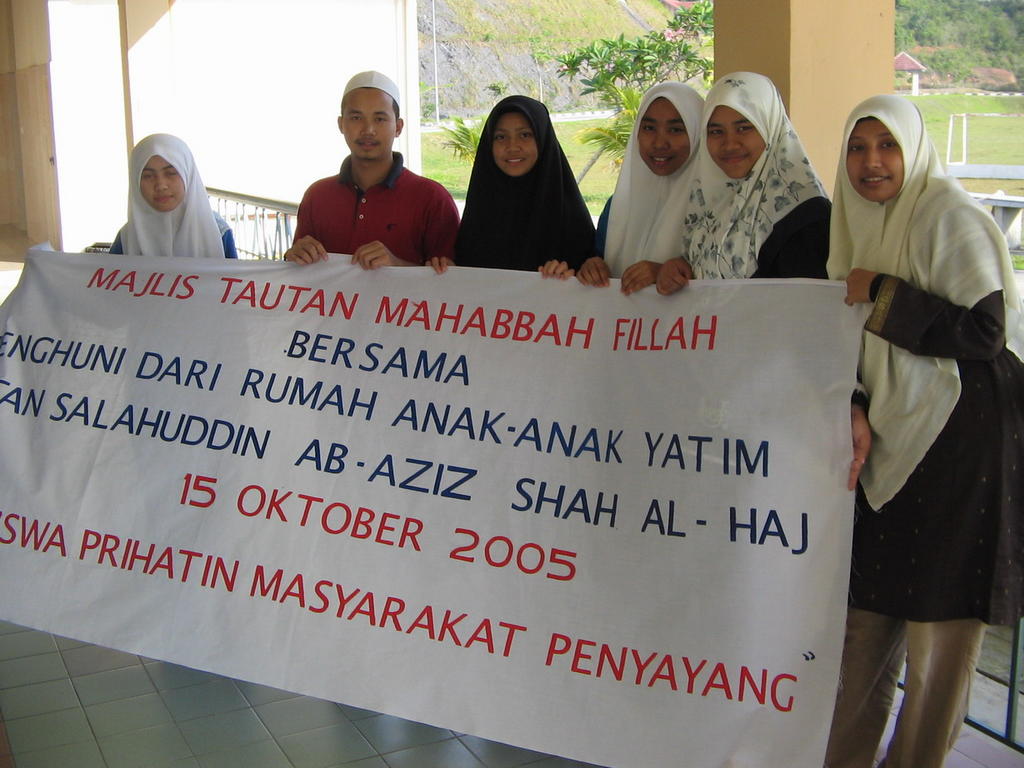 MAJLIS TAUTAN MAHABBAH FILLAH
BERSAMA
ENGHUNI DARI RUMAH ANAK-ANAK YATIM
TAN SALAHUDDIN AB-AZIZ SHAH AL-HAJ
15 OKTOBER 2005
ISWA PRIHATIN MASYARAKAT PENYAYANG"